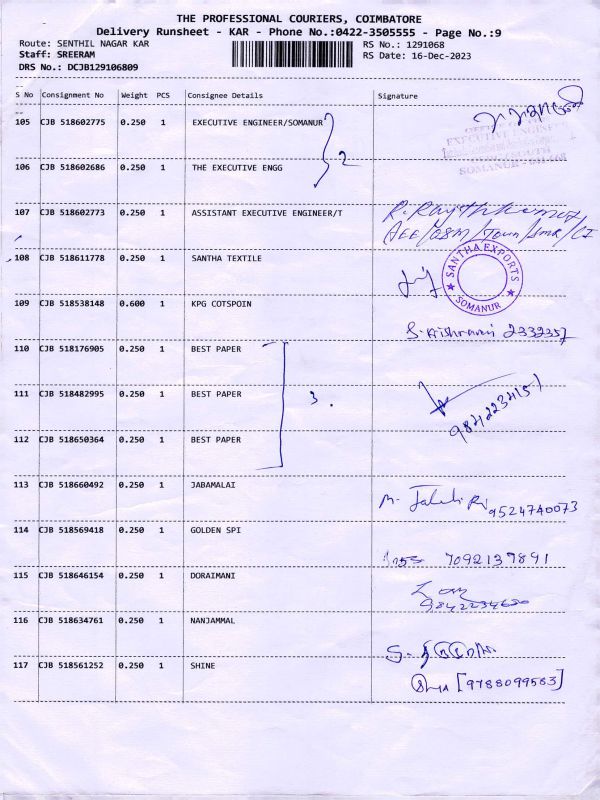 THE PROFESSIONAL COURIERS, COIMBATORE
Delivery Runsheet - KAR - Phone No.:0422-3505555 - Page No.:9
Route: SENTHIL NAGAR KAR
RS No.: 1291068
Staff: SREERAM
RS Date: 16-Dec-2023
DRS No.: DCJB129106809
S No Consignment No Weight PCS Consignee Details Signature
105 CJB 518602775 0.250 1 EXECUTIVE ENGINEER/SOMANUR
2
EXECUTIVE ENGINEER
SOMANUR
106 CJB 518602686 0.250 1 THE EXECUTIVE ENGG
107 CJB 518602773 0.250 1 ASSISTANT EXECUTIVE ENGINEER/T
AEE/O&M/Town/SMR/CI
108 CJB 518611778 0.250 1 SANTHA TEXTILE
SANTHA EXPORTS
SOMANUR
109 CJB 518538148 0.600 1 KPG COTSPOIN
110 CJB 518176905 0.250 1 BEST PAPER
111 CJB 518482995 0.250 1 BEST PAPER
3.
112 CJB 518650364 0.250 1 BEST PAPER
113 CJB 518660492 0.250 1 JABAMALAI
9524740073
114 CJB 518569418 0.250 1 GOLDEN SPI
7092137891
115 CJB 518646154 0.250 1 DORAIMANI
116 CJB 518634761 0.250 1 NANJAMMAL
117 CJB 518561252 0.250 1 SHINE
[9788099583]